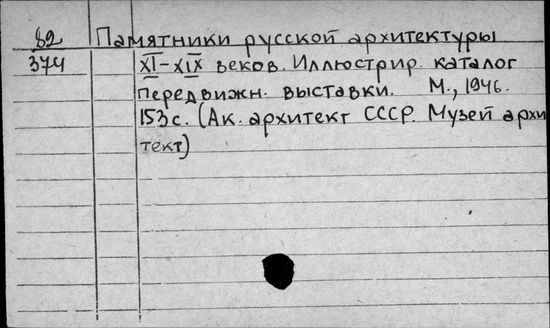 82 Памятники русской архитектуры
374 XI-XIX веков. Иллюстрир. каталог
передвижн. выставки. М., 1946.
153 с. (Ак. архитект СССР. Музей архи
тект)